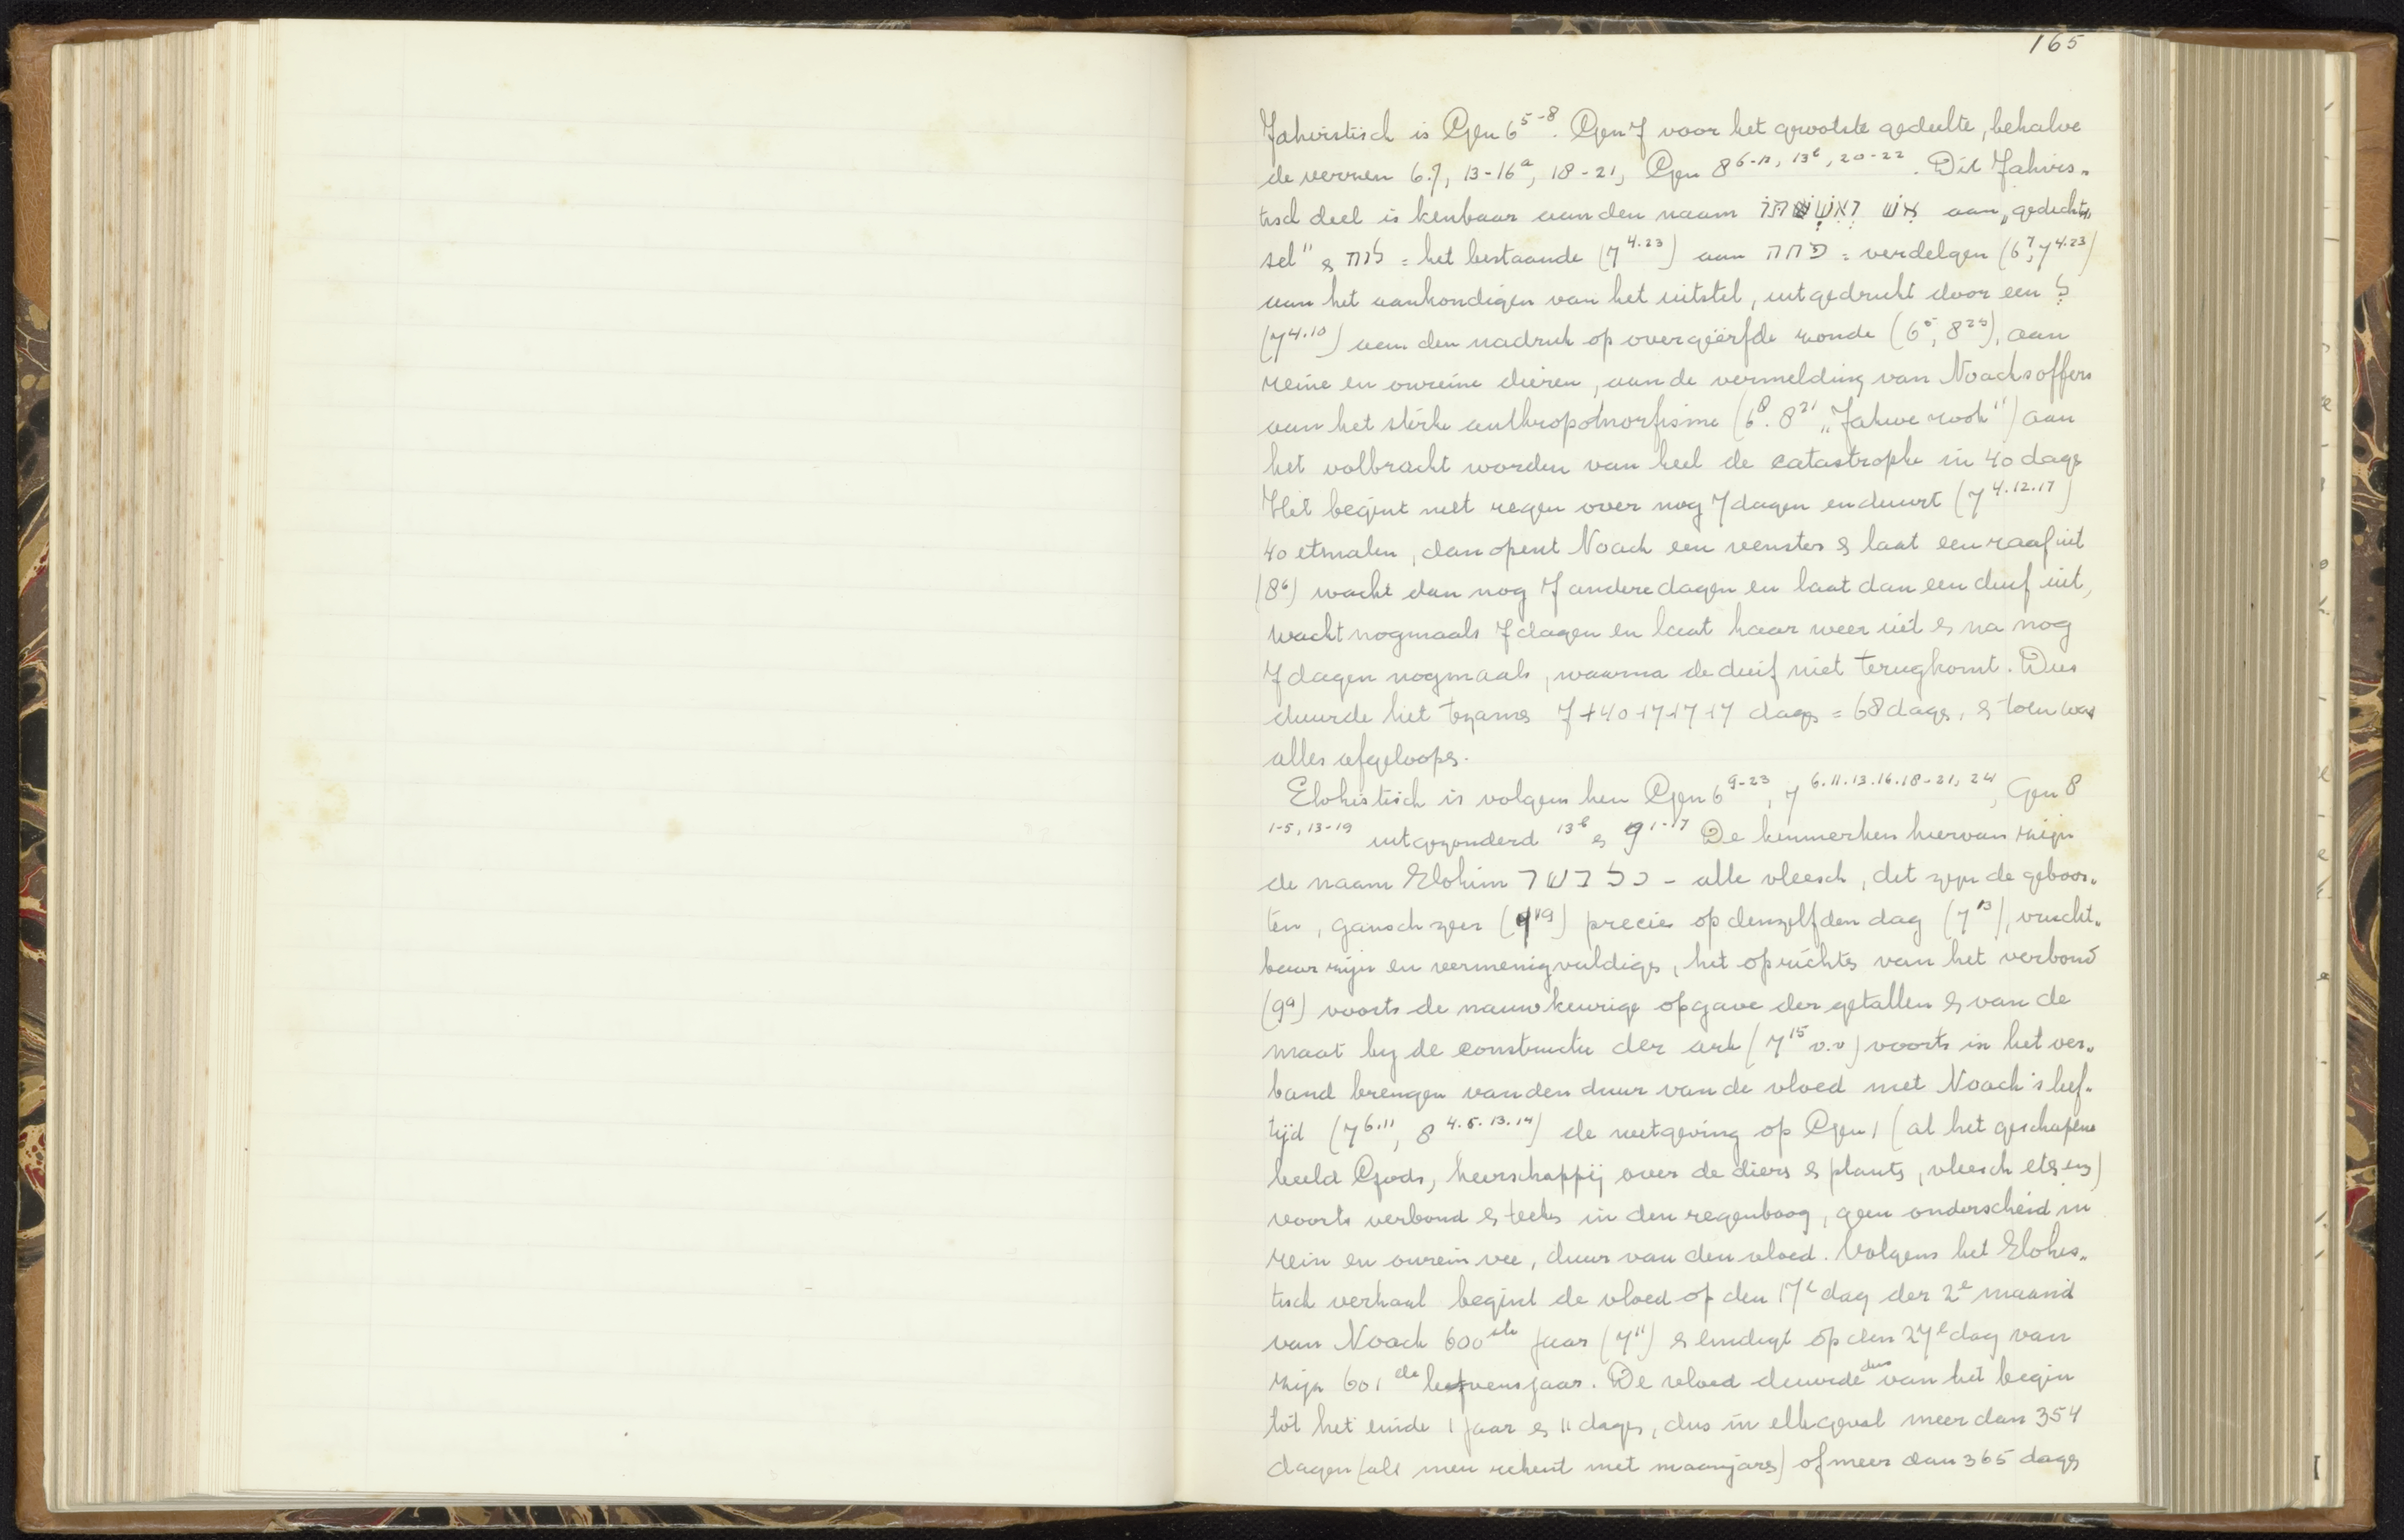 165
Jahvistisch is Gen 6 5-8. Gen 7 voor het grootste gedeelte, behalve
de verzen 6.9, 13-16a, 18-21, Gen 8 6-12, 13b, 20-22. Dit Jahvis„
tisch deel is kenbaar aan den naam איש ואשתו aan „gedicht„
sel" & = het bestaande (7 4.23) aan = verdelgen (6 7, 7 4.23)
aan het aankondigen van het uitstel, uitgedrukt door een ל
(7 4.10) aan den nadruk op overgeërfde zonde (6 5, 8 25), aan
reine en onreine dieren, aan de vermelding van Noachs offers
aan het sterke anthropomorfisme (6 8. 8 21 „Jahwe rook") aan
het volbracht worden van heel de catastrophe in 40 dags
Het begint met regen over nog 7 dagen en duurt (7 4.12.17)
40 etmalen, dan opent Noach een venster & laat een raaf uit
(8 6) wacht dan nog 7 andere dagen en laat dan een duif uit,
wacht nogmaals 7 dagen en laat haar weer uit & na nog
7 dagen nogmaals, waarna de duif niet terugkomt. Dus
duurde het tezams 7+40+7+7+7 dags = 68 dags, & toen was
alles afgeloops.
Elohistisch is volgens hen Gen 6 9-23, 7 6.11.13.16.18-21, 24, Gen 8
1-5, 13-19 uitgezonderd 13b & 9 1-17 De kenmerken hiervan zijn
de naam Elohim כל בשר - alle vleesch, dit zijn de geboor„
ten, gansch zeer (7 19) precies op denzelfden dag (7 13), vrucht„
baar zijn en vermenigvuldigs, het oprichts van het verbond
(9 9) voorts de nauwkeurige opgave der getallen & van de
maat bij de constructie der ark (7 15 v.v) voorts in het ver„
band brengen van den duur van de vloed met Noach's leef„
tijd (7 6.11, 8 4.5.13.14) de wetgeving op Gen 1 (al het geschapene
beeld Gods, heerschappij over de diers & plants, vleesch ets enz)
voorts verbond & teeks in den regenboog, geen onderscheid in
rein en onrein vee, duur van den vloed. Volgens het Elohis„
tisch verhaal begint de vloed op den 17e dag der 2e maand
van Noach 600ste jaar (7 11) & eindigt op den 27e dag van
zijn 601de levensjaar. De vloed duurde dus van het begin
tot het einde 1 jaar & 11 dags, dus in elk geval meer dan 354
dagen (als men rekent met maanjars) of meer dan 365 dags